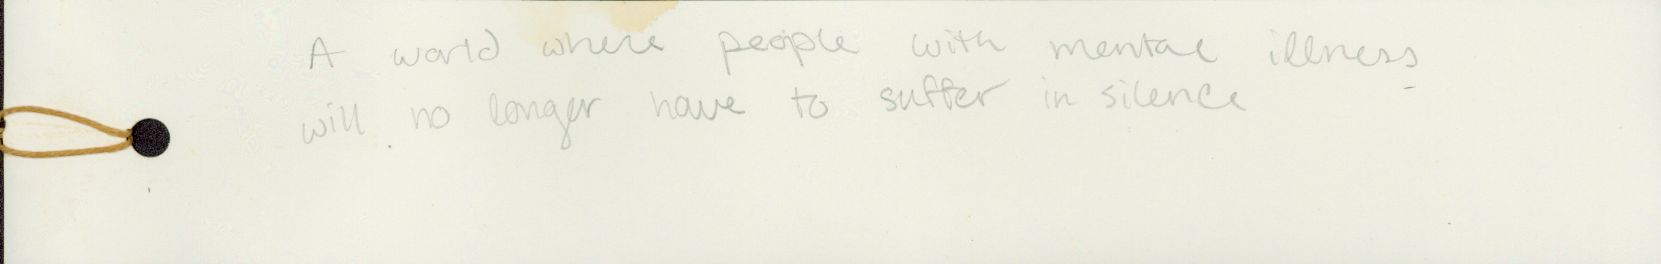 A world where people with mental illness
will no longer have to suffer in silence